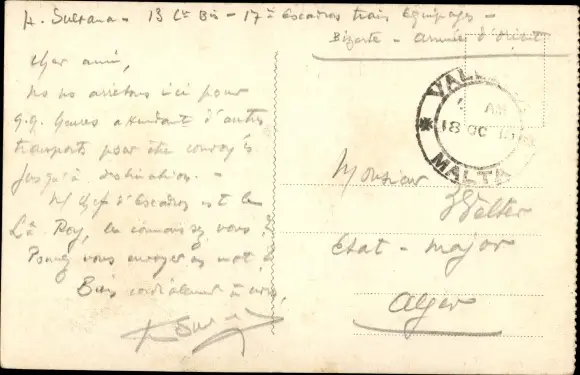 H. Sultana - 13 Cie Bis - 17è Escadron train Equipages -
Bizerte - Armée d'Orient
Cher ami,
Nous nous arrêtons ici pour
q.q. heures attendant d'autres
transports pour être convoyés
jusqu'à destination. -
chef d'Escadron est le
Roy, le connaissez vous ?
envoyer un mot
Bien cordialement à vous,
VALLETTA
AM
18 OC
MALTA
Monsieur
Walter
Etat-major
Alger